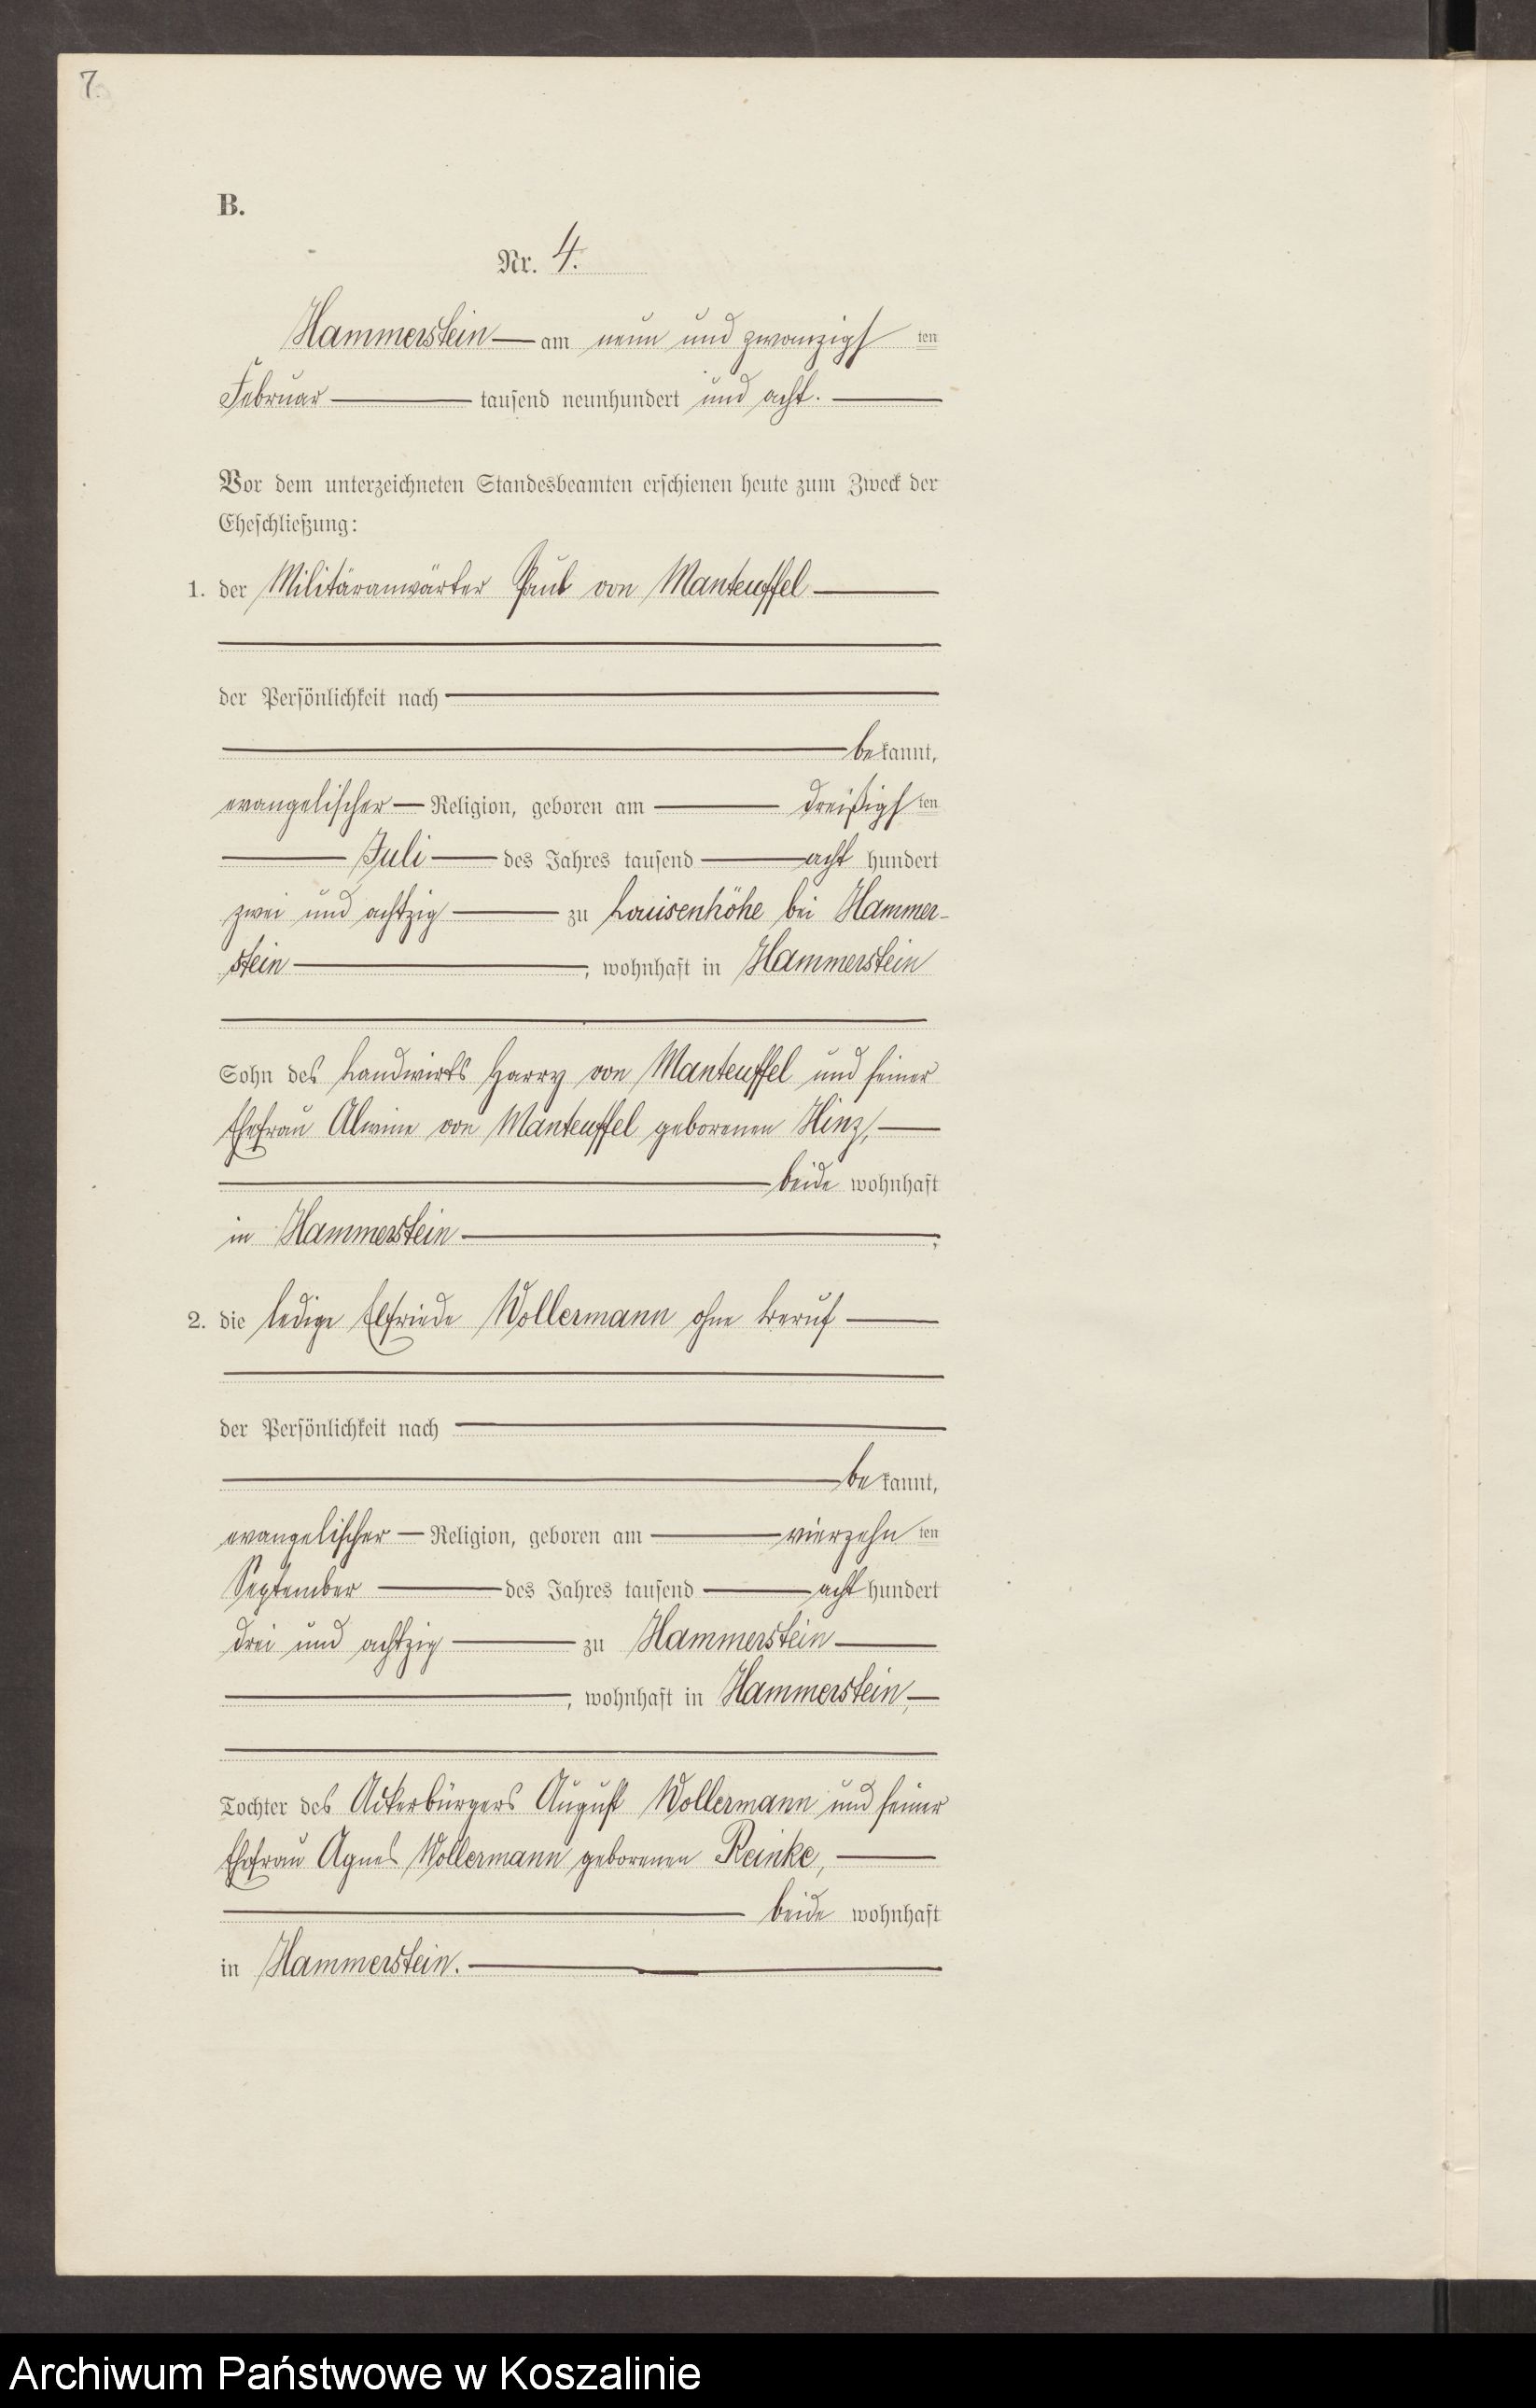 7.
B.
Nr. 4.
Hammerstein am neun und zwanzigsten
Februar tausend neunhundert und acht.
Vor dem unterzeichneten Standesbeamten erschienen heute zum Zweck der
Eheschließung:
1. der Militäranwärter Paul von Manteuffel
der Persönlichkeit nach
bekannt,
evangelischer Religion, geboren am dreißigsten
Juli des Jahres tausend acht hundert
zwei und achtzig zu Louisenhöhe bei Hammer-
stein, wohnhaft in Hammerstein
Sohn des Landwirts Harry von Manteuffel und seiner
Ehefrau Alwine von Manteuffel geborenen Hinz,
beide wohnhaft
in Hammerstein;
2. die ledige Elfriede Wollermann ohne Beruf
der Persönlichkeit nach
bekannt,
evangelischer Religion, geboren am vierzehnten
September des Jahres tausend acht hundert
drei und achtzig zu Hammerstein
, wohnhaft in Hammerstein,
Tochter des Ackerbürgers August Wollermann und seiner
Ehefrau Agnes Wollermann geborenen Reinke,
beide wohnhaft
in Hammerstein.
Archiwum Państwowe w Koszalinie